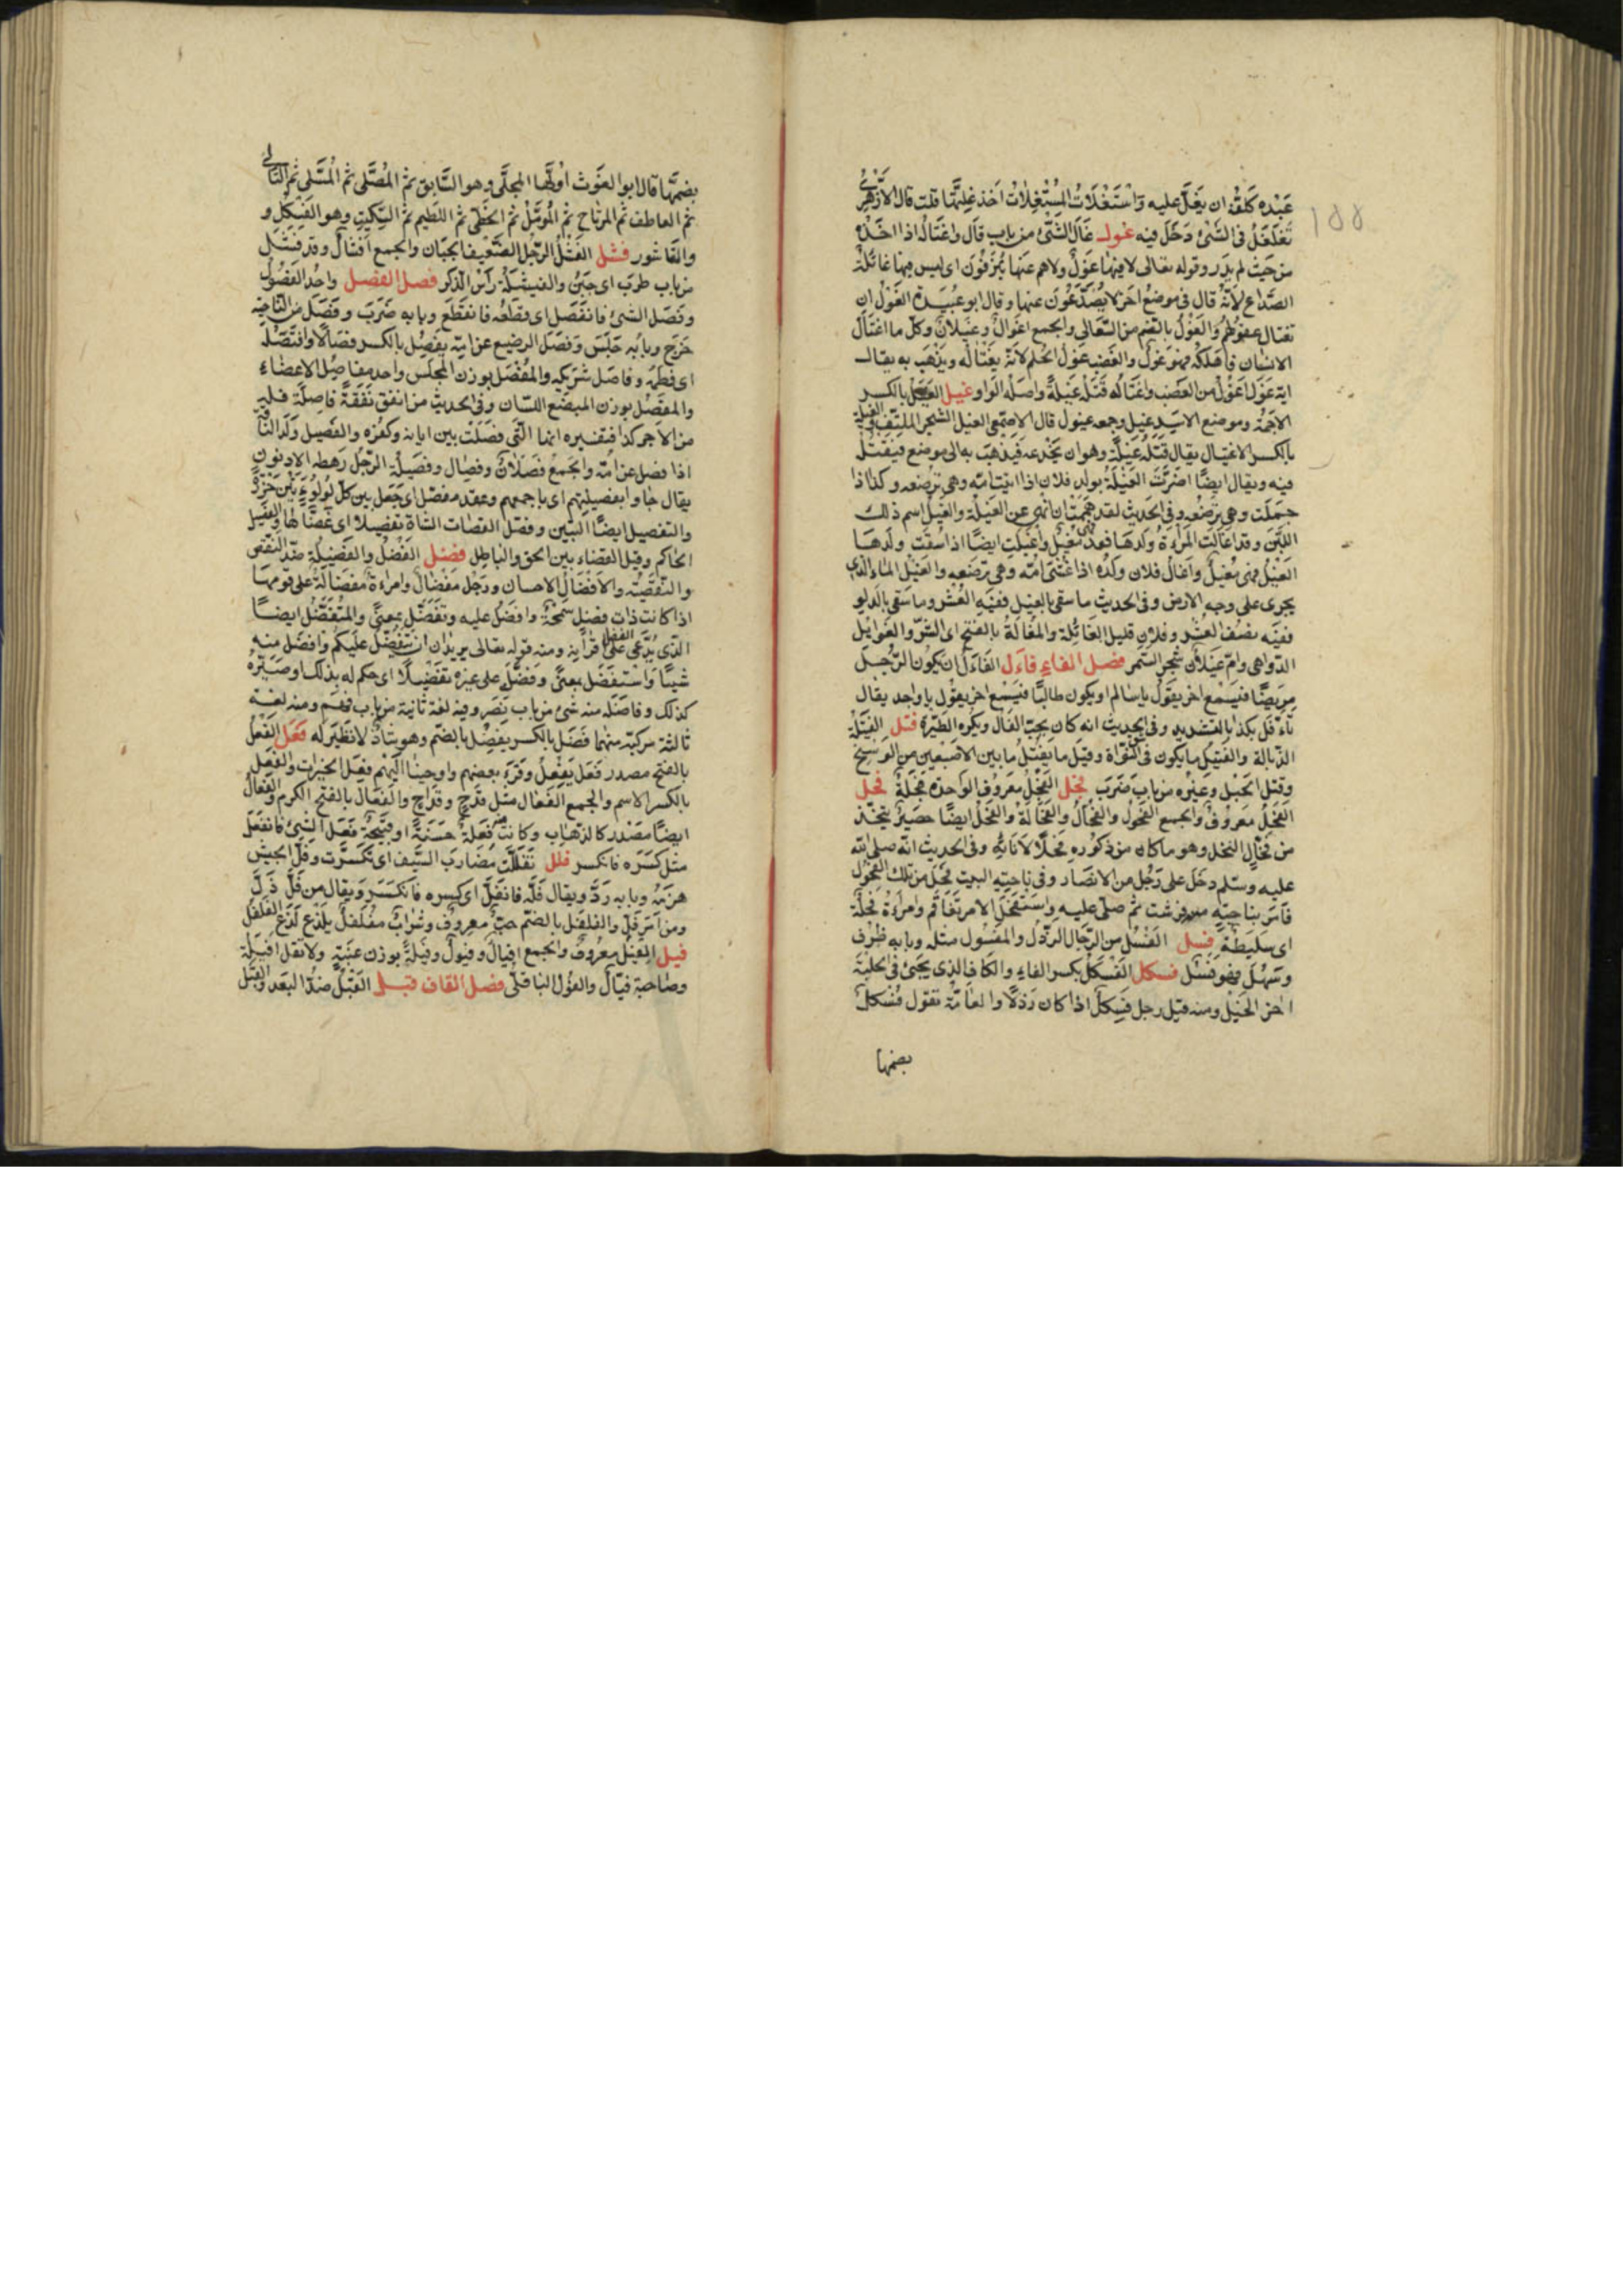 ١٥٥
عَبْده كلفه ان يغلّ عليه واستغلات المستغلات اخذ غلّتها قلت قال الازهرى
تغلغل فى الشئ دخل فيه غول غال الشئ من باب قال واغتاله اذا اخذه
من حيث لم يدر وقوله تعالى لا فيها غول ولا هم عنها ينزفون اى ليس فيها غائلة
الصداع لانه قال فى موضع اخر لا يصدّعون عنها وقال ابو عبيدة الغول ان
تغتال عقولهم والغول بالضم من السعالى والجمع اغوال وغيلان وكل ما اغتال
الانسان فاهلكه فهو غول والغضب غول الحلم لانه يغتاله ويذهب به يقال
اية غول اغول من الغضب واغتاله قتله غيلة واصله الواو غيل الغيل بالكسر
الاجمة وموضع الاسد غيل وجمعه غيول قال الاصمعى الغيل الشجر الملتف والغيلة
بالكسر الاغتيال يقال قتله غيلة وهو ان يخدعه فيذهب به الى موضع فيقتله
فيه ويقال ايضا اضرّت الغيلة بولد فلان اذا اتيت امه وهى ترضعه وكذا اذا
حملت وهى ترضعه وفى الحديث لقد هممت ان انهى عن الغيلة والغيل اسم ذلك
اللبن وقد اغالت المراة ولدها فهى مغيل واغيلت ايضا اذا سقت ولدها
الغيل فهى مغيل واغال فلان ولده اذا غشى امه وهى ترضعه والغيل الماء الذى
يجرى على وجه الارض وفى الحديث ما سقى بالغيل ففيه العشر وما سقى بالدلو
ففيه نصف العشر وفلان قليل الغائلة والمغالة بالفتح اى الشر والغوايل
الدواهى وام غيلان شجر السمر فصل الفاء فاءل الفاءل ان يكون الرجل
مريضا فيسمع اخر يقول يا سالم او يكون طالبا فيسمع اخر يقول يا واجد يقال
تفاءل بكذا بالتشديد وفى الحديث انه كان يحب الفال ويكره الطيرة فتل الفتيلة
الذبالة والفتيل ما يكون فى النواة وقيل ما يفتل ما بين الاصبعين من الوسخ
وفتل الحبل وغيره من باب ضرب فجل الفجل معروف الواحدة فجلة فحل
الفحل معروف والجمع الفحول والفحال والفحالة والفحل ايضا حصير يتخذ
من فحال النخل وهو ما كان من ذكوره فحلا لاناثه وفى الحديث انه صلى الله
عليه وسلم دخل على رجل من الانصار وفى ناحية البيت فحل من تلك الفحول
فامر بناحية منه فرشت ثم صلى عليه واستفحل الامر تفاقم وامراة فحلة
اى سليطة فسل الفسل من الرجال الرذل والمفسول مثله وبابه ظرف
وسهل فهو فسل فسكل الفسكل بكسر الفاء والكاف الذى يجئ فى الحلبة
اخر الخيل ومنه قيل رجل فسكل اذا كان رذلا والعامة تقول فسكل
بضمها
بضمها قال ابو الغوث اولها المجلى وهو السابق ثم المصلى ثم المسلى ثم التالى
ثم العاطف ثم المرتاح ثم المؤمل ثم الحظى ثم اللطيم ثم السكيت وهو الفسكل و
والقاشور فشل الفشل الرجل الضعيف الجبان والجمع افشال وقد فشل
من باب طرب اى جبن والفيشلة راس الذكر فصل الفصل واحد الفصول
وفصل الشئ فانفصل اى قطعه فانقطع وبابه ضرب وفصل من الناحية
خرج وبابه جلس وفصل الرضيع عن امه يفصل بالكسر فصالا وافتصله
اى فطمه وفاصل شريكه والمفصل بوزن المجلس واحد مفاصل الاعضاء
والمفصل بوزن المبضع اللسان وفى الحديث من انفق نفقة فاصلة فله
من الاجر كذا فتفسيره انها التى فصلت بين ايمانه وكفره والفصيل ولد الناقة
اذا فصل عن امه والجمع فصلان وفصال وفصيلة الرجل رهطه الادنون
يقال جاوا بفصيلتهم اى باجمعهم وعقد مفصل اى جعل بين كل لؤلؤتين خرزة
والتفصيل ايضا التبيين وفصل القصاب الشاة تفصيلا اى عضّاها والفيصل
الحاكم وقيل القضاء بين الحق والباطل فضل الفضل والفضيلة ضد النقص
والنقيصة والافضال الاحسان ورجل مفضال وامراة مفضالة على قومها
اذا كانت ذات فضل سمحة وافضل عليه وتفضل بمعنى والمتفضل ايضا
الذى يدّعى الفضل على اقرانه ومنه قوله تعالى يريد ان يتفضل عليكم وافضل منه
شيئا واستفضل بمعنى وفضّله على غيره تفضيلا اى حكم له بذلك او صيّره
كذلك وفاضله منه شئ من باب نصر وفيه لغة ثانية من باب فهم ومنه لغة
ثالثة مركبة منهما فضل بالكسر يفضل بالضم وهو شاذ لا نظير له فعل الفعل
بالفتح مصدر فعل يفعل وقرء بعضهم واوحينا اليهم فعل الخيرات والفعل
بالكسر الاسم والجمع الفعال مثل قدح وقداح والفعال بالفتح الكرم والفعال
ايضا مصدر كالذهاب وكانت منه فعلة حسنة او قبيحة وفعل الشئ فانفعل
مثل كسره فانكسر فلل تفللت مضارب السيف اى تكسرت وفل الجيش
هزمه وبابه رد ويقال فله فانفل اى كسره فانكسر ويقال من فلّ ذلّ
ومن امر فلّ والفلفل بالضم حب معروف وشراب مفلفل يلذع لذع الفلفل
فيل الفيل معروف والجمع افيال وفيول وفيلة بوزن عنبة ولا تقل افيلة
وصاحبه فيّال والفول الباقلى فصل القاف قبل القبل ضد البعد والقبل